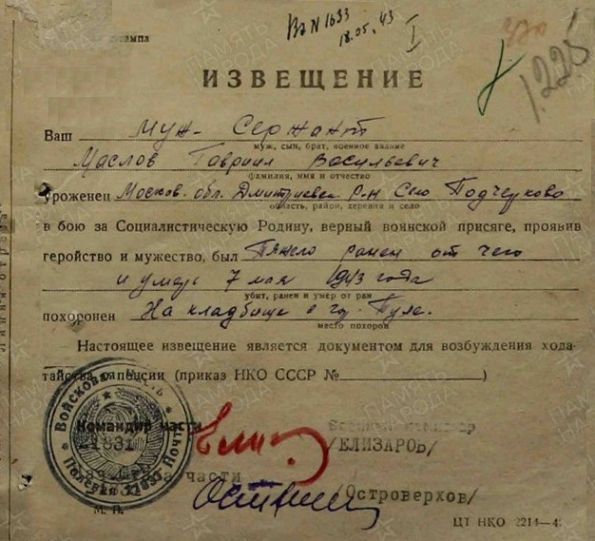 тампа
Вх N 1633
18.05.43
I
1225
ИЗВЕЩЕНИЕ
Ваш муж - Сержант
муж, сын, брат, военное звание
Маслов Гавриил Васильевич
фамилия, имя и отчество
уроженец Москов. обл. Дмитриевск. р-н село Подчерково
область, район, деревня и село
в бою за Социалистическую Родину, верный воинской присяге, проявив
геройство и мужество, был Тяжело ранен от чего
и умер 7 мая 1943 года
убит, ранен и умер от ран
похоронен На кладбище в гор. Туле.
место похорон
Настоящее извещение является документом для возбуждения хода-
тайства о пенсии (приказ НКО СССР № )
Командир части
Военный комиссар
/ЕЛИЗАРОВ/
части
/Островерхов/
Войсковая часть
Полевая Почта
М. П.
ЦТ НКО 2214—4
ПАМЯТЬ НАРОДА